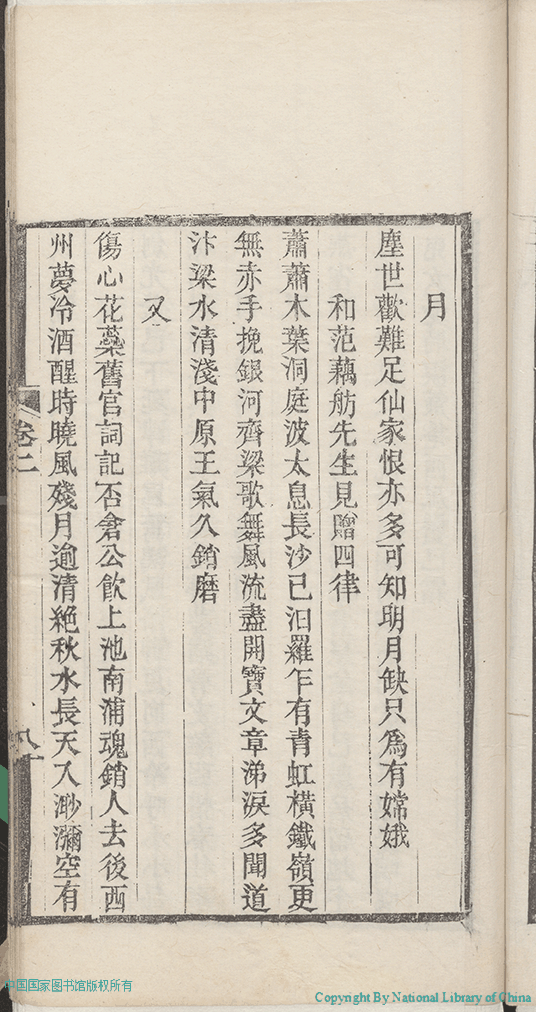 月
塵世歡難足仙家恨亦多可知明月缺只爲有嫦娥
和范藕舫先生見贈四律
蕭蕭木葉洞庭波太息長沙已汨羅乍有青虹橫鐵嶺更
無赤手挽銀河齊梁歌舞風流盡開寶文章涕淚多聞道
汴梁水清淺中原王氣久銷磨
又
傷心花蘂舊官詞記否倉公飮上池南浦魂銷人去後西
州夢冷酒醒時曉風殘月逾清絶秋水長天入渺瀰空有
卷二
八
中国国家图书馆版权所有
Copyright By National Library of China